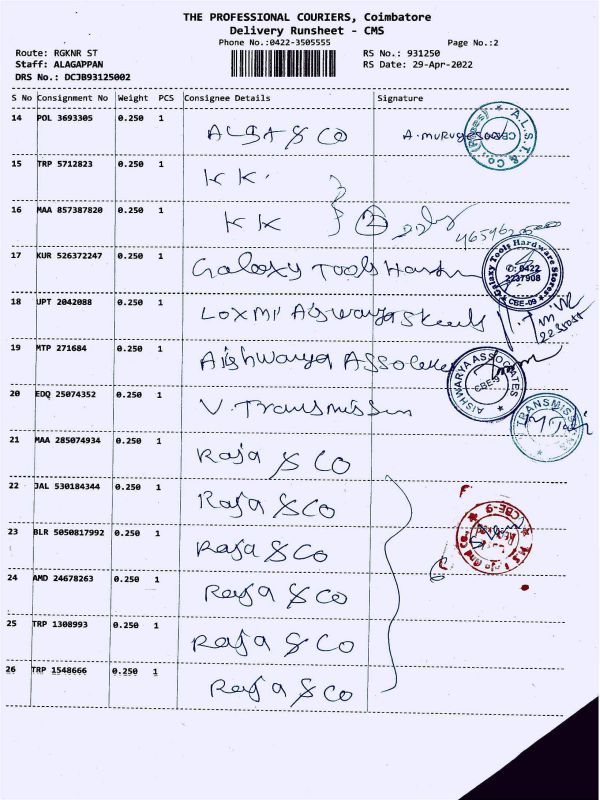 THE PROFESSIONAL COURIERS, Coimbatore
Delivery Runsheet - CMS
Phone No.:0422-3505555
Page No.:2
Route: RGKNR ST
RS No.: 931250
Staff: ALAGAPPAN
RS Date: 29-Apr-2022
DRS No.: DCJB93125002
S No Consignment No Weight PCS Consignee Details Signature
14 POL 3693305 0.250 1 ALSA & CO A. murugesan
A.L.S.T. & Co.
15 TRP 5712823 0.250 1 KK.
16 MAA 857387820 0.250 1 KK 2
17 KUR 526372247 0.250 1 Galaxy Tools Hardw
Galaxy Tools Hardware Stores
✆: 0422
2237908
CBE-09
18 UPT 2042088 0.250 1 Loxmi Aiswarya Steels
19 MTP 271684 0.250 1 Aishwarya Associates
AISHWARYA ASSOCIATES
CBE-9
20 EDQ 25074352 0.250 1 V. Transmission
TRANSMISSIONS
21 MAA 285074934 0.250 1 Raja & Co
22 JAL 530184344 0.250 1 Raja & Co
CBE-9
23 BLR 5050817992 0.250 1 Raja & Co
24 AMD 24678263 0.250 1 Raja & Co
25 TRP 1308993 0.250 1 Raja & Co
26 TRP 1548666 0.250 1 Raja & Co